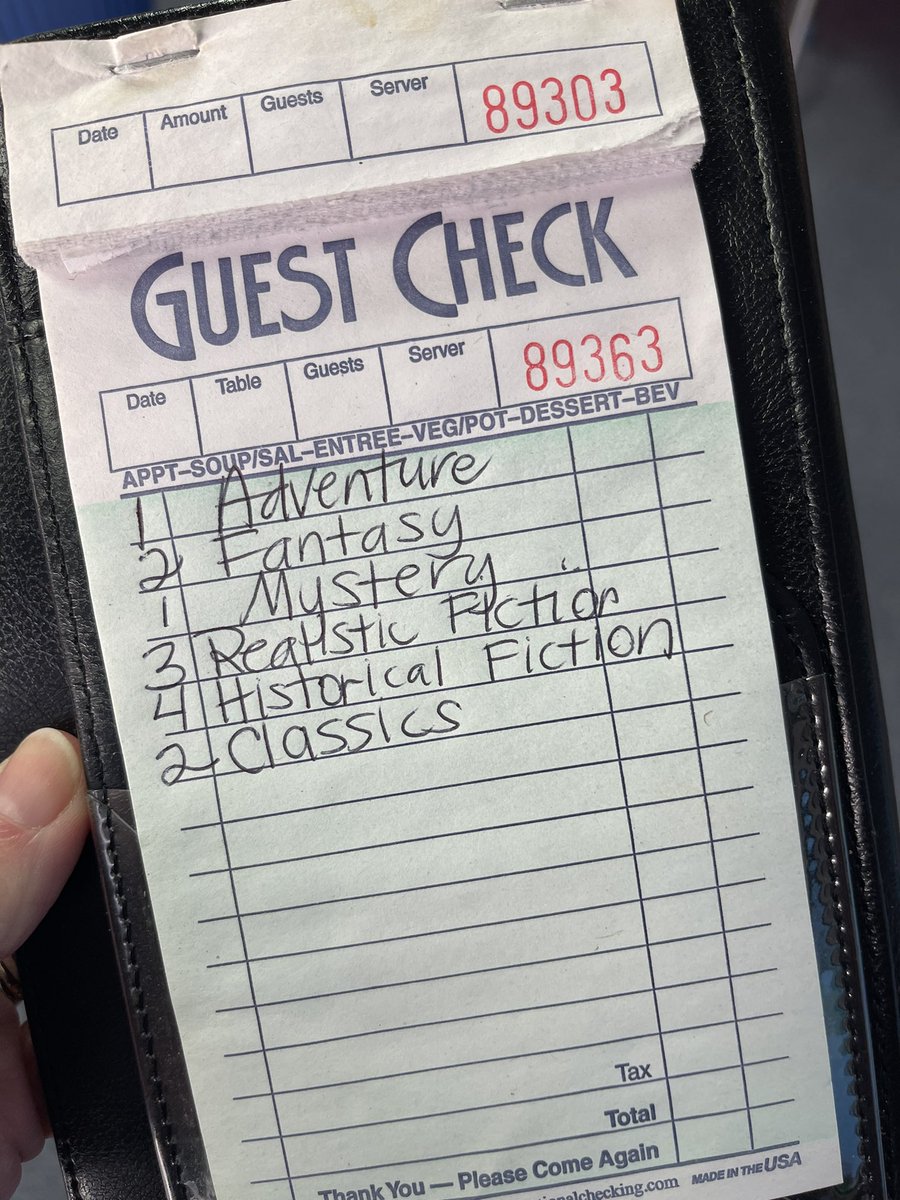 Date Amount Guests Server 89303
GUEST CHECK
Date Table Guests Server 89363
APPT–SOUP/SAL–ENTREE–VEG/POT–DESSERT–BEV
1 Adventure
2 Fantasy
1 Mystery
3 Realistic Fiction
4 Historical Fiction
2 Classics
Tax
Total
Thank You — Please Come Again
MADE IN THE USA